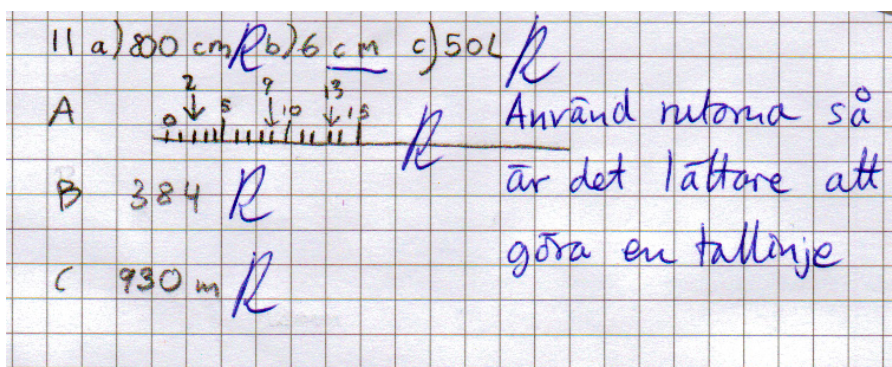 11 a) 800 cm R b) 6 cm c) 50L R
2 9 13
A 0 5 10 15 R
B 384 R
C 930 m R
Använd rutorna så
är det lättare att
göra en tallinje